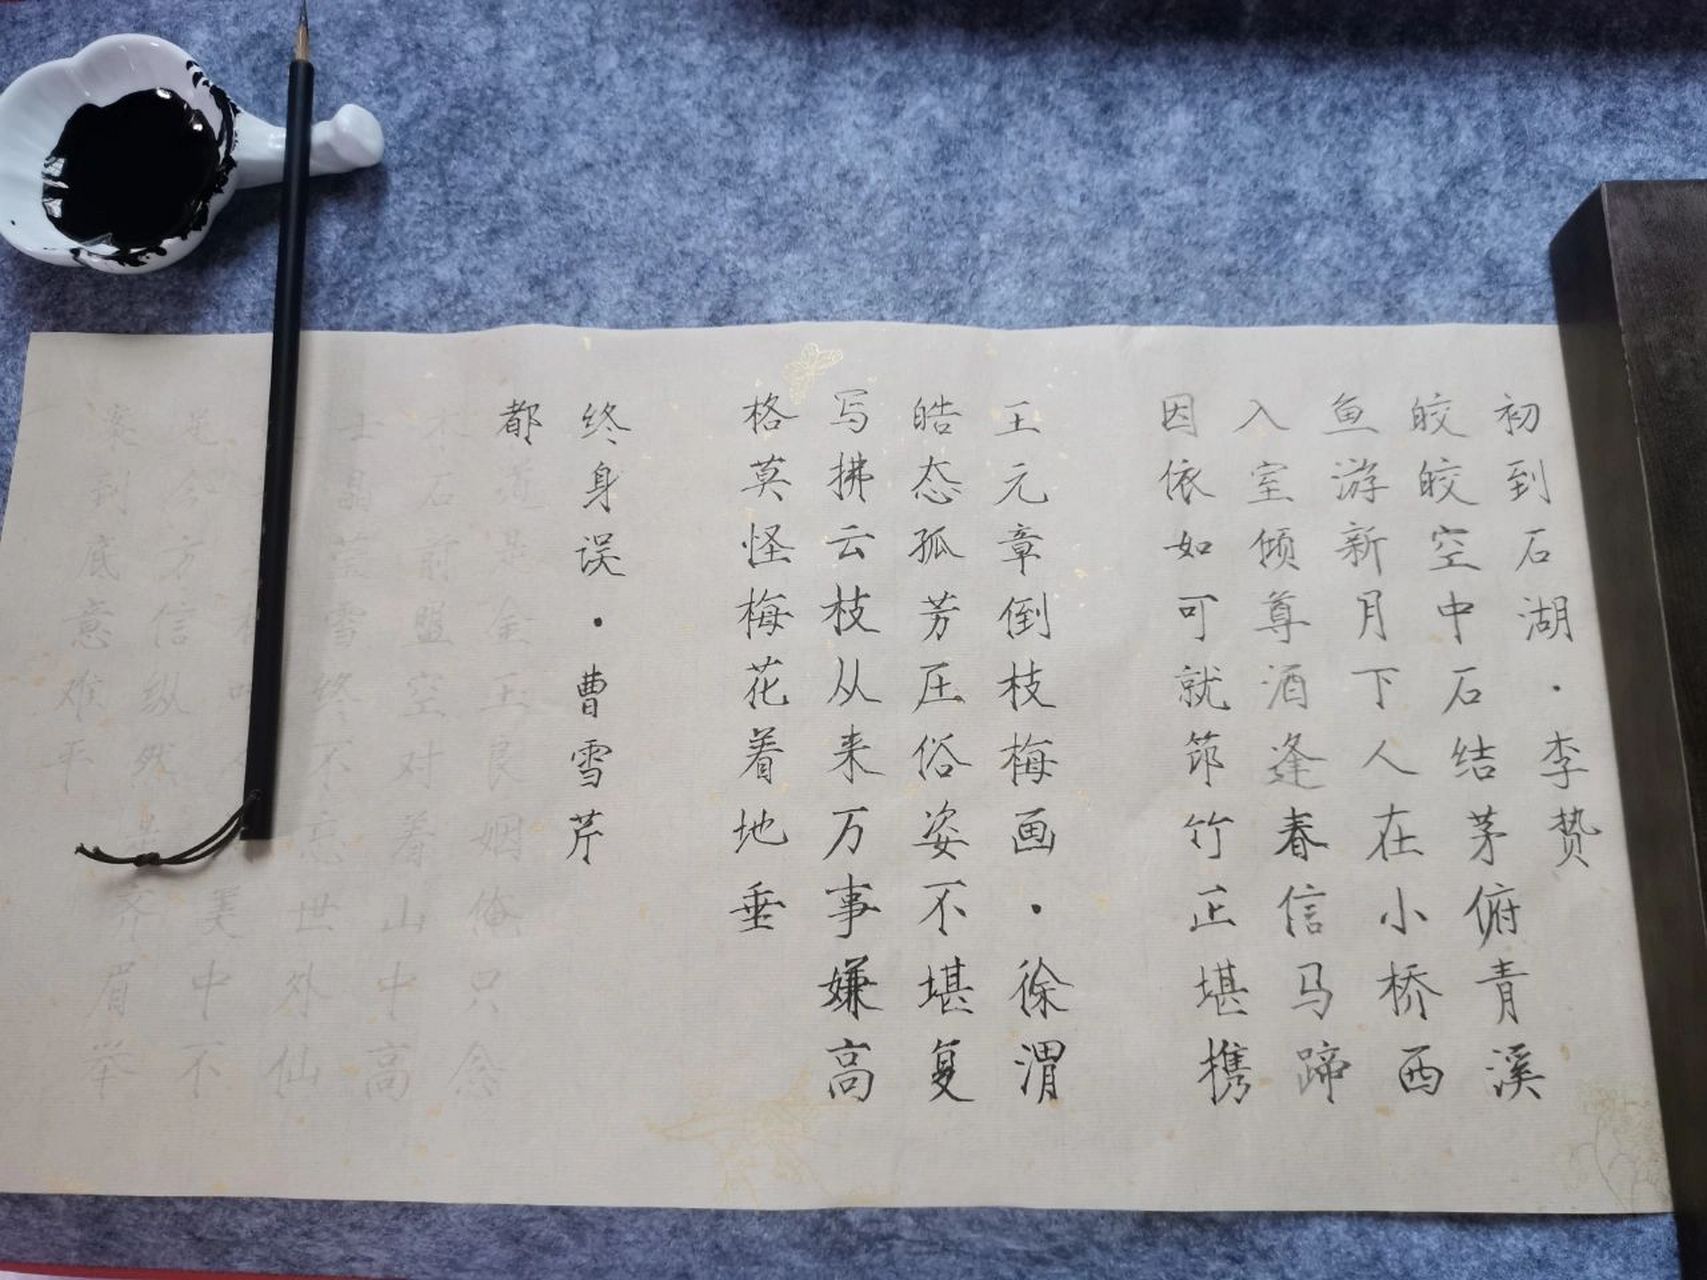 初到石湖·李贽
皎皎空中石结茅俯青溪
鱼游新月下人在小桥西
入室倾尊酒逢春信马蹄
因依如可就筇竹正堪携
王元章倒枝梅画·徐渭
皓态孤芳压俗姿不堪复
写拂云枝从来万事嫌高
格莫怪梅花着地垂
终身误·曹雪芹
都道是金玉良姻俺只念
木石前盟空对着山中高
士晶莹雪终不忘世外仙
美中不
足今方信纵然是齐眉举
案到底意难平